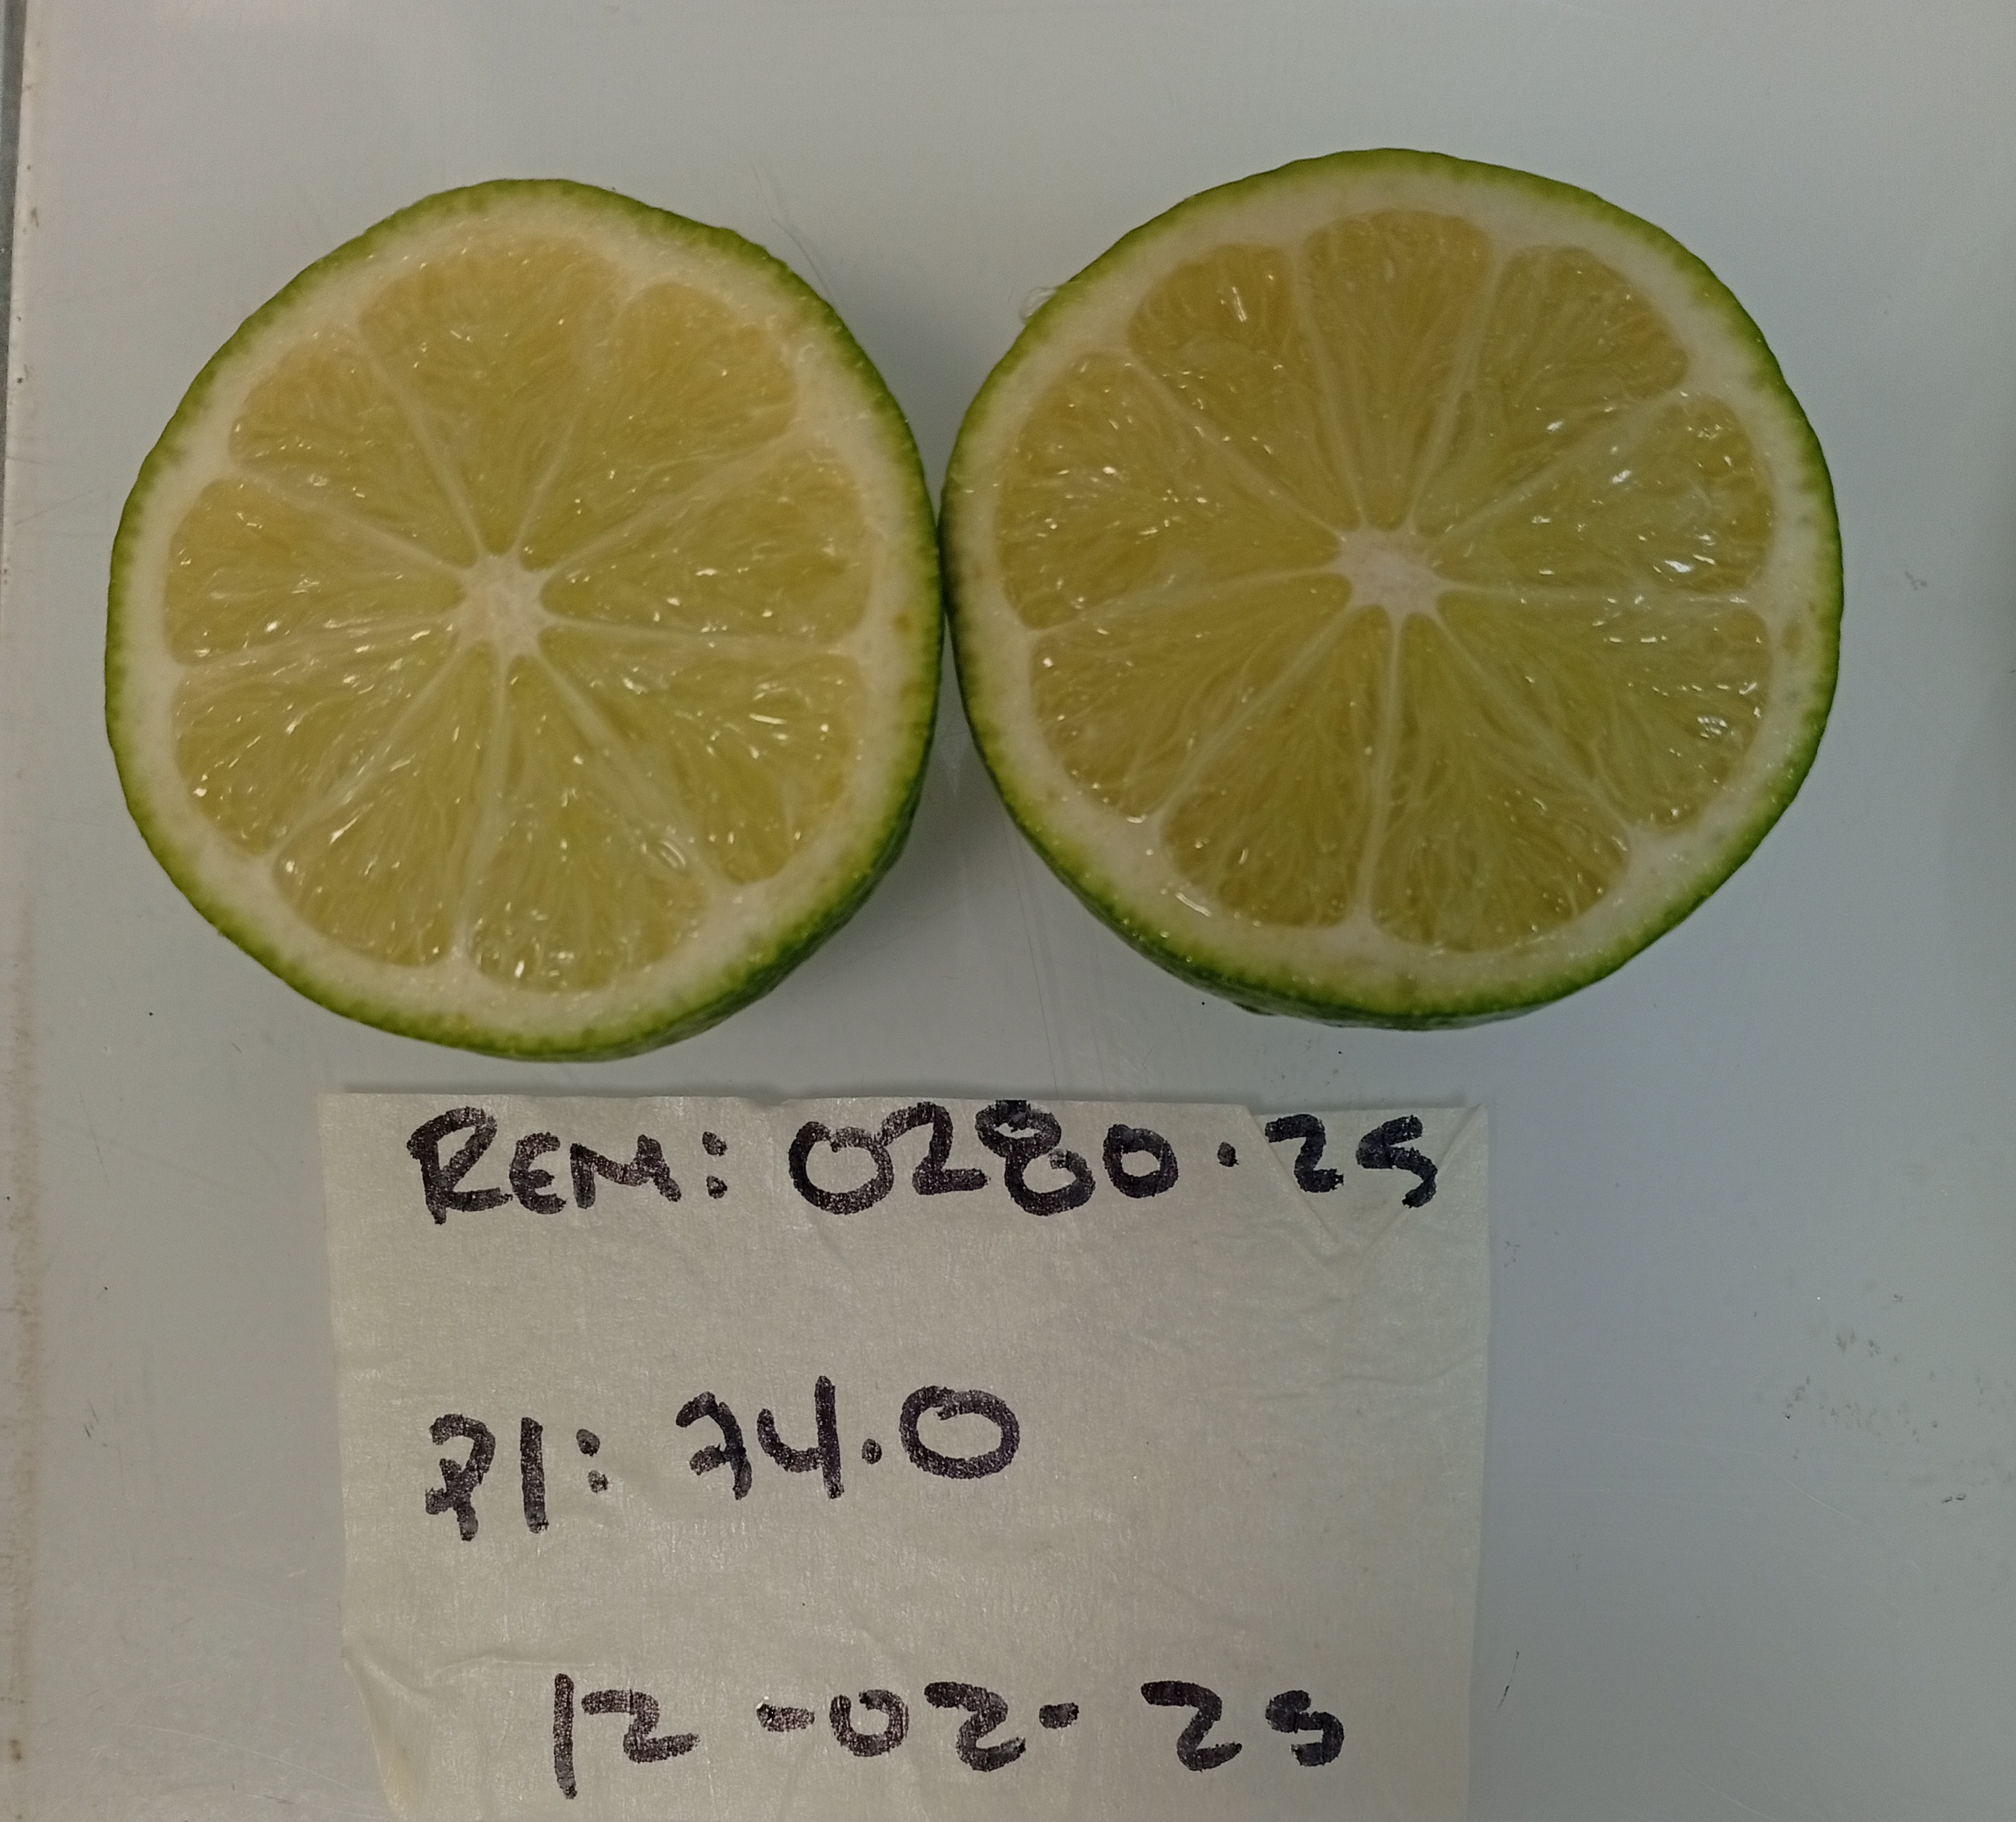 REM: 0280.25
P1: 74.0
12-02-25